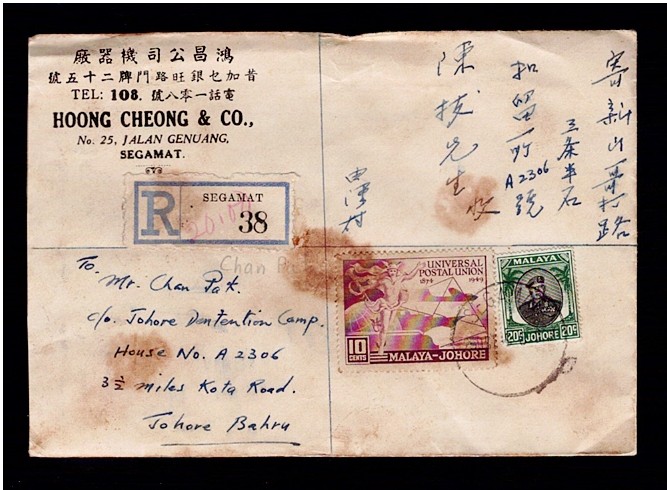 鴻昌公司機器廠
昔加乜銀旺路門牌二十五號
TEL: 108. 電話一零八號
HOONG CHEONG & CO.,
No. 25, JALAN GENUANG,
SEGAMAT.
R
SEGAMAT
38
寄新山哥打路
三条半石
扣留所A2306號
陳拔先生收
To,
Mr. Chan Pat.
c/o. Johore Dentention Camp.
House No. A 2306
3 ½ miles Kota Road.
Johore Bahru
UNIVERSAL
POSTAL UNION
1874 1949
10 CENTS
MALAYA-JOHORE
MALAYA
20c JOHORE 20c